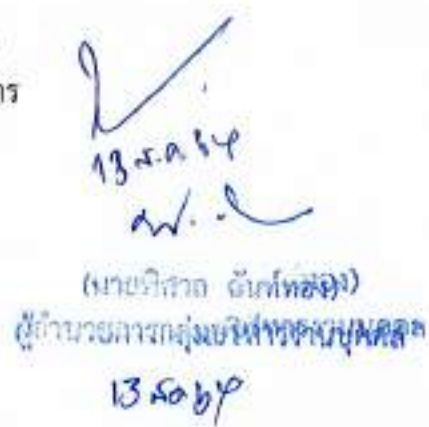 าร
13 ส.ค. 64
(นายพิศาล จันท์ทอง)
ผู้อำนวยการกลุ่มบริหารงานบุคคล
13 สค 64